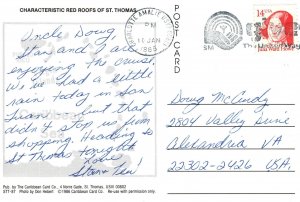 CHARACTERISTIC RED ROOFS OF ST. THOMAS
Uncle Doug
Stan and I are
enjoying the cruise.
We've had a little
rain today in San
Juan but that
didn't stop us from
shopping. Heading to
St Thomas tonight
Love
Stan +
POST CARD
CHARLOTTE AMALIE
PM
11 JAN
14
USA
Julia Ward Howe
Doug McCurdy
2804 Valley Drive
Alexandria VA.
22302-2426 USA.
Pub. by The Caribbean Card Co., 4 Norre Gade, St. Thomas, USVI 00802
Photo by Don Hebert ©1986 Caribbean Card Co. Re-use with permission only.